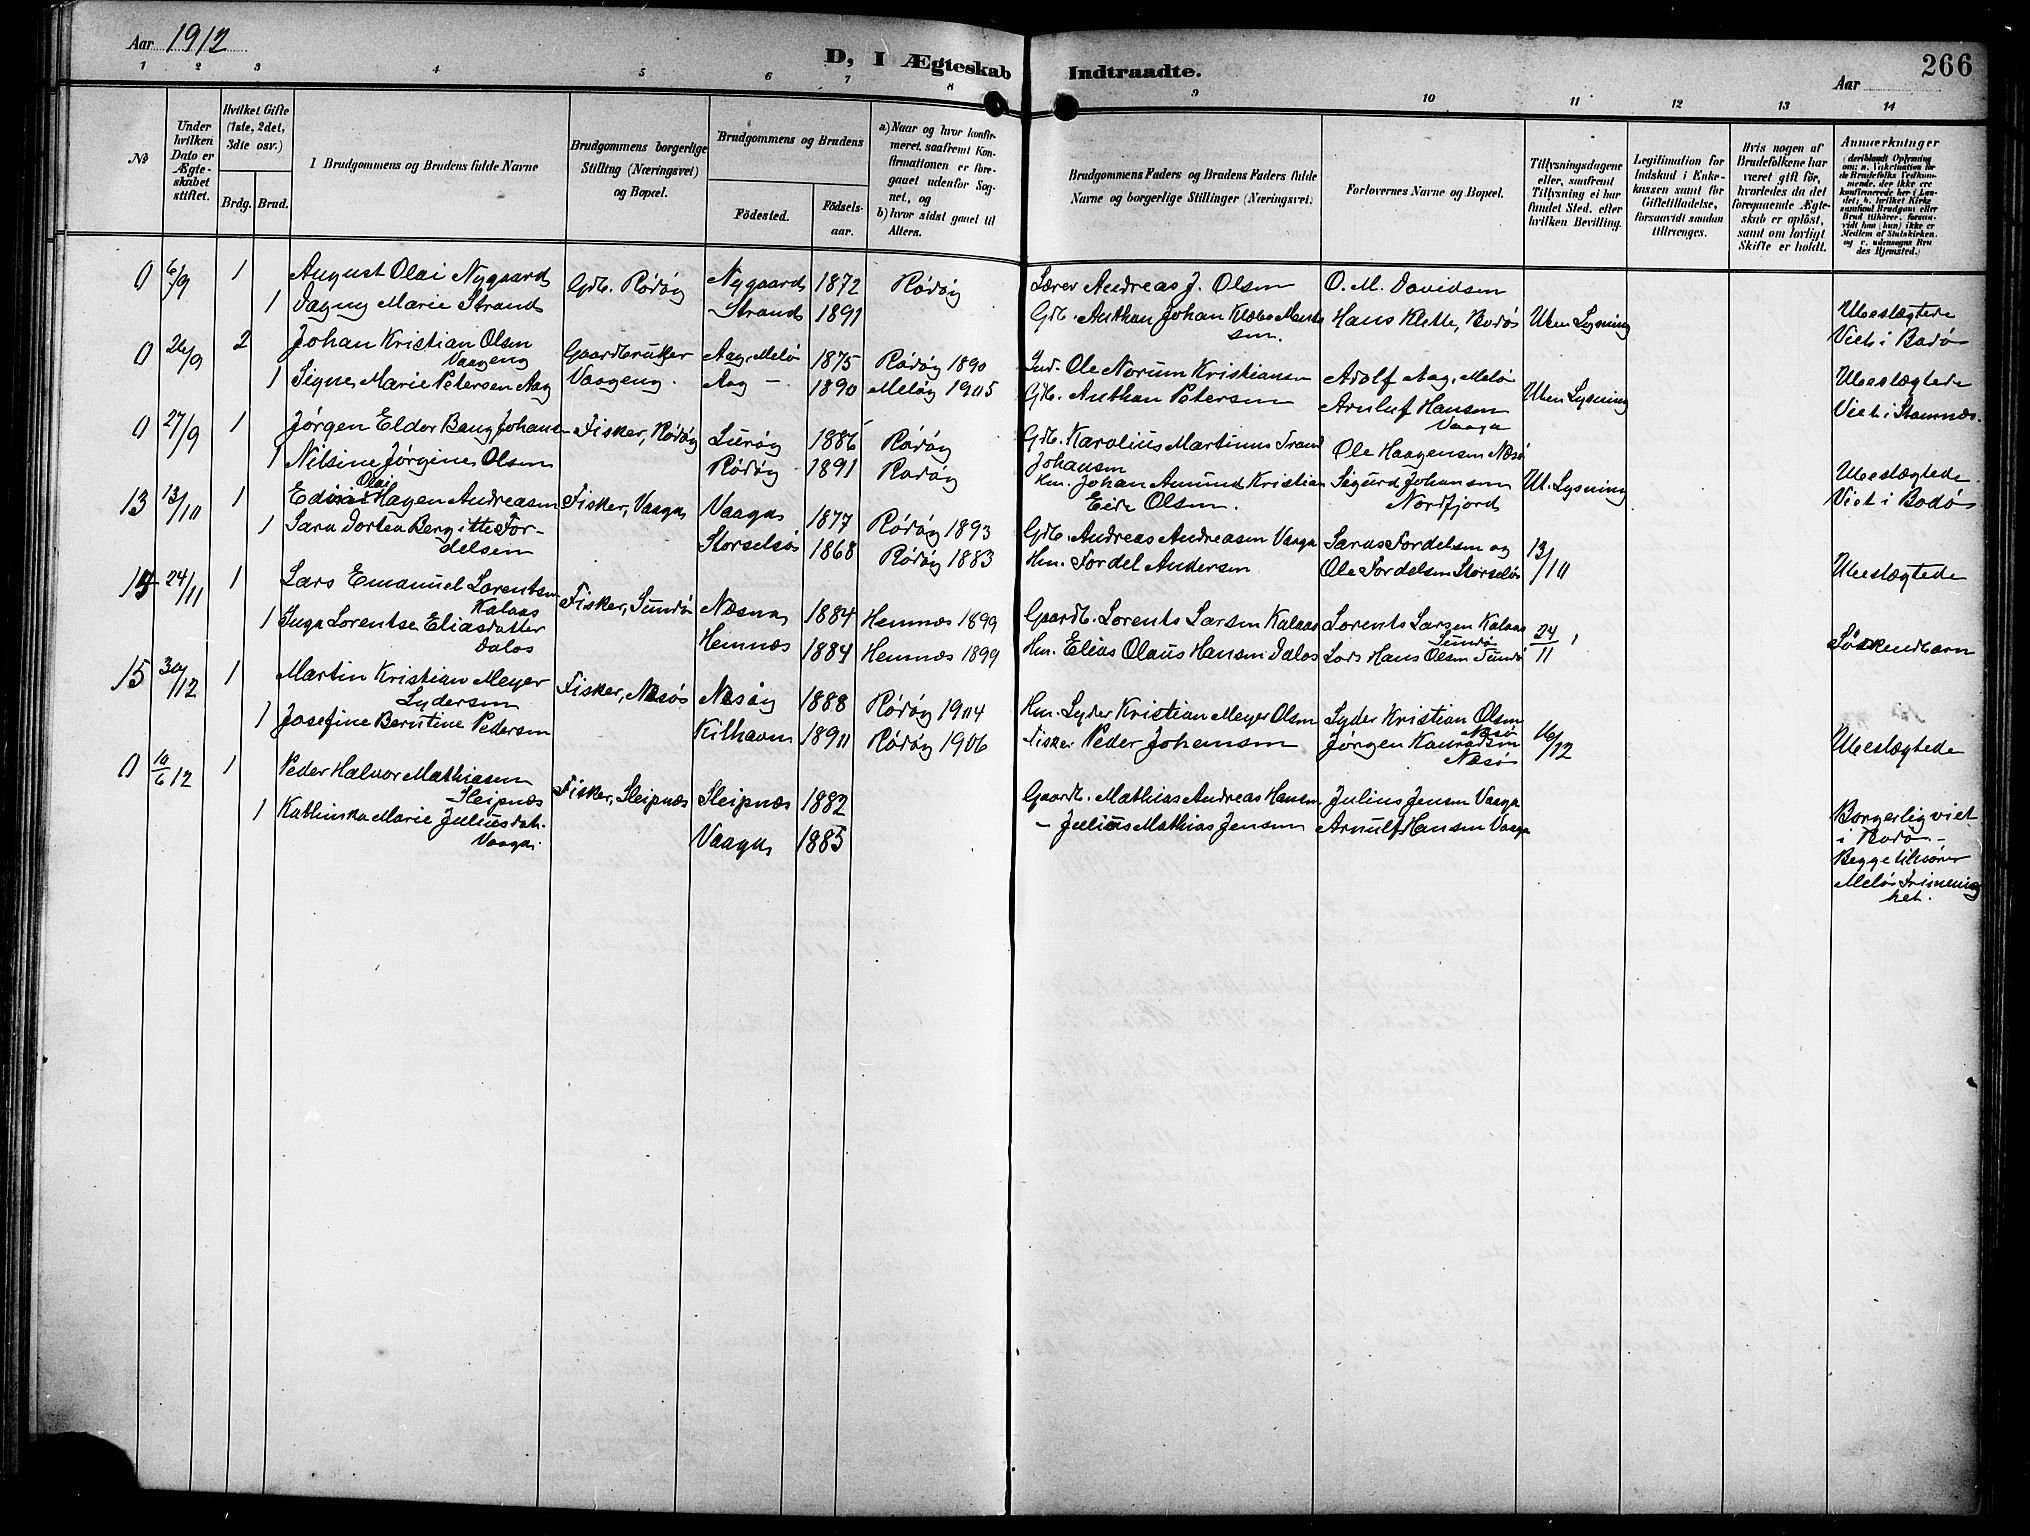 Aar 1912
D, I Ægteskab Indtraadte.
Aar
266
1 2 3 4 5 6 7 8 9 10 11 12 13 14
No
Under hvilken Dato er Ægteskabet stiftet.
Hvilket Gifte (1ste, 2det, 3die osv.)
Brdg. Brud.
I Brudgommens og Brudens fulde Navne
Brudgommens borgerlige Stilling (Næringsvei) og Bopæl.
Brudgommens og Brudens
Födested. Födsels-aar.
a) Naar og hvor konfirmeret, saafremt Konfirmationen er foregaaet udenfor Sognet, og
b) hvor sidst gaaet til Alters.
Brudgommens Faders og Brudens Faders fulde Navne og borgerlige Stillinger (Næringsvei.)
Forlovernes Navne og Bopæl.
Tillysningsdagene eller, saafremt Tillysning ei har fundet Sted, efter hvilken Bevilling.
Legitimation for Indskud i Enkekassen samt for Giftetilladelse, forsaavidt saadan tiltrænges.
Hvis nogen af Brudefolkene har været gift før, hvorledes da det foregaaende Ægteskab er opløst, samt om lovligt Skifte er holdt.
Anmærkninger
0 6/9 1 August Olai Nygaard Gdb. Rödöy Nygaard 1872 Rödöy Lærer Andreas J. Olsen O. M. Davidsen
1 Dagny Marie Strand Strand 1891 Gdb. Anthon Johan Klæbo Mentsen. Hans Klette, Bodø Uten Lysning Ubeslægtede
Viet i Bodø
0 26/9 2 Johan Kristian Olsen Vaageng Gaardbruker Vaageng. Aag, Melø 1875 Rödöy 1890 Ind. Ole Norum Kristiansen Adolf Aag, Melø
1 Signe Marie Petersen Aag Aag - 1890 Melöy 1905 Gdb. Anthon Petersen Arnluf Hansen Vaaga Uten Lysning Ubeslægtede
Viet i Stamnæs.
0 27/9 1 Jørgen Eldor Bang Johansen Fisker, Rödöy Luröy 1886 Rödöy Gdb. Karolius Martinus Trand Johansen Ole Haagensen Næsø
1 Nilsine Jørgine Olsen Rödöy 1891 Rödöy Hm. Johan Amund Kristian Eide Olsen. Sigurd Johansen Nordfjord Ut. Lysning Ubeslægtede
Viet i Bodø
13 13/10 1 Olai Hagen Andreasen Fisker, Vaaga Vaaga 1877 Rödöy 1893 Gdb. Andreas Andreasen Vaaga Larus Tordelsen og
1 Sara Dortea Bergitte Tordelsen Storselsö 1868 Rödöy 1883 Hm. Tordel Andersen Ole Tordelsen Storselsö 13/10 Ubeslægtede
14 24/11 1 Lars Emanuel Lorentsen Kalaas Fisker, Sundø Næsna 1884 Hemnæs 1899 Gaardb. Lorents Larsen Kalaas Lorents Larsen Kalaas
1 Inga Lorentse Eliasdatter Dalos Hemnæs 1884 Hemnæs 1899 Hm. Elias Olaus Hansen Dalos Hans Olsen Sundø 24/11 Søskendbarn
15 30/12 1 Martin Kristian Meyer Lydersen Fisker, Næsø Næsöy 1888 Rödöy 1904 Hm. Lyder Kristian Meyer Olsen Lyder Kristian Olsen Næsø
1 Josefine Berntine Pedersen Kilhavn 1890 Rödöy 1906 Fisker Peder Johansen Jørgen Konradsen Næsø 16/12 Ubeslægtede
0 10/6 12 1 Peder Halvor Mathiasen Sleipnæs Fisker, Sleipnæs Sleipnæs 1882 Gaardb. Mathias Andreas Hansen Julius Jensen Vaaga
1 Kathinka Marie Juliusdatt. Vaaga. Vaaga 1885 - Julius Mathias Jensen Arnulf Hansen Vaaga
Borgerlig viet
i Bodø -
Begge tilhører
Melø Frimenighet.